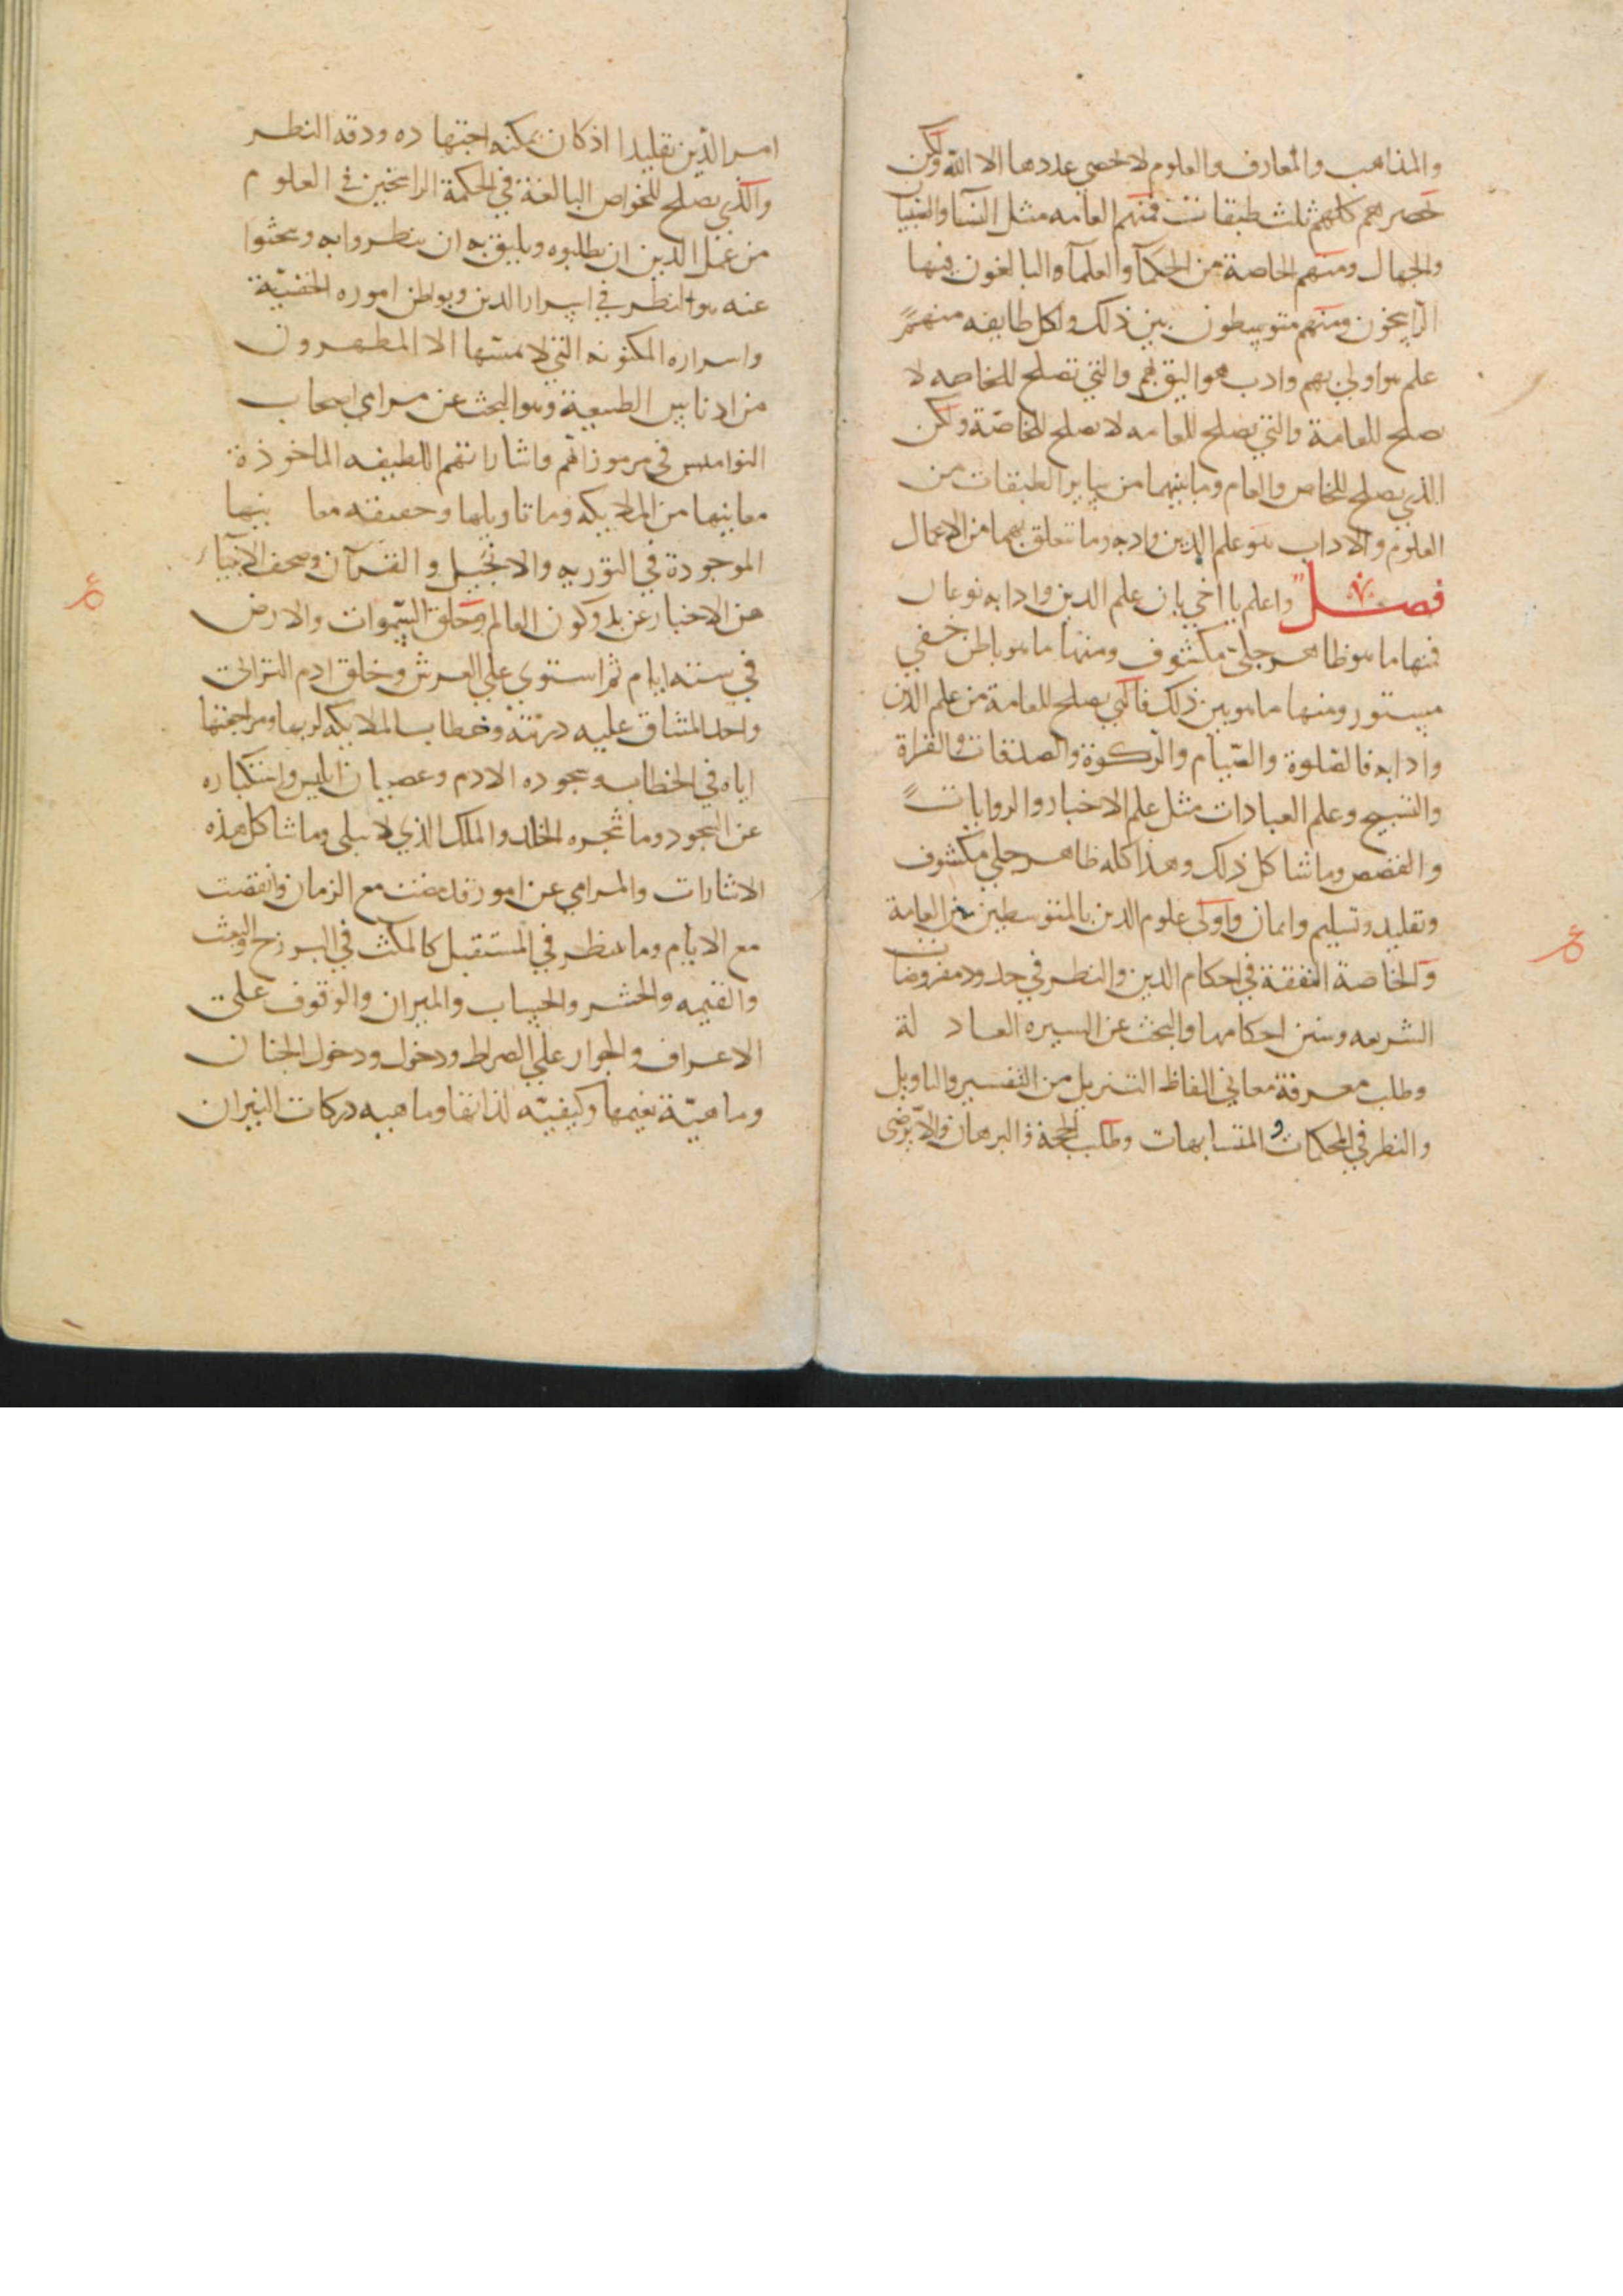 والمذاهب والمعارف والعلوم لا يحصي عددها الا الله ولكن
يحصرهم كلهم ثلث طبقات فمنهم العامه مثل النسا والصبيان
والجهال ومنهم الخاصة من الحكما والعلما والبالغون فيها
الراسخون ومنهم متوسطون بين ذلك ولكل طايفه منهم
علم هو اولى بهم وادب هو اليق بهم والتي تصلح للخاصه لا
يصلح للعامة والتي يصلح للعامه لا يصلح للخاصّة ولكن
الذي يصلح للخاص والعام وما بينهما من ساير الطبقات من
العلوم والاداب هو علم الدين وادبه وما تتعلق بهما من الاعمال
فصل واعلم يا اخي بان علم الدين وادابه نوعان
فمنها ما هو ظاهر جلي مكشوف ومنها ما هو باطن خفي
مستور ومنها ما هو بين ذلك فالتي يصلح للعامة من علم الدين
وادابه فالصّلوة والصّيام والزكوة والصدقات والقراة
والتسبيح وعلم العبادات مثل علم الاخبار والروايات
والقصص وما شاكل ذلك وهذا كله ظاهر جلي مكشوف
وتقليد وتسليم وايمان واولى علوم الدين بالمتوسطين من العامة
والخاصة التفقة في احكام الدين والنظر في حدود مفروضات
الشريعه وسنن احكامها والبحث عن السيره العادلة
وطلب معرفة معاني الفاظ التنزيل من التفسير والتاويل
والنظر في المحكمات و المتسابهات وطلب الحجة والبرهان والا يرضى
امر الدّين تقليدا اذ كان يمكنه اجتهاده ودقه النظر
والذي يصلح للخواص البالغة في الحكمة الراسخين في العلوم
من علم الدين ان يطلبوه ويليق به ان ينظروا به ويبحثوا
عنه هو النظر في اسرار الدين وبواطن اموره الخفيّة
واسراره المكنونه التي لا يمسّها الا المطهرون
من ادناس الطبيعة وهو البحث عن مرامي اصحاب
النواميس في مرموزاتهم واشاراتهم اللطيفه الماخوذة
معانيها من الملايكه وما تاويلها وحقيقه معانيها
الموجودة في التوريه والانجيل والقرآن وصحف الانبياء
من الاخبار عن بدو كون العالم وخلق السّموات والارض
في ستة ايام ثم استوي علي العرش وخلق ادم الترابى
واخد المشاق عليه ذريّته وخطاب الملايكه لربها ومراجعتها
اياه في الخطاب وسجوده الادم وعصيان ابليس واستكباره
عن السجود وما شجره الخلد والملك الذي لا يبلى وما شاكل هذه
الاشارات والمرامي عن امور قد مضت مع الزمان وانقضت
مع الايام وما ينظر في المستقبل كالمكث في البرزح والبعث
والقيمه والحشر والحساب والميزان والوقوف على
الاعراف والجواز علي الصراط ودخول ودخول الجنان
وماهيّة نعيمها وكيفيّه لذاتها وماهيه دركات النيران